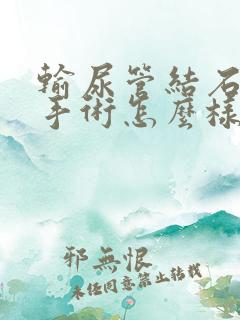 輸尿管結石
手術怎麼樣
邪無恨
未任同意禁止轉載